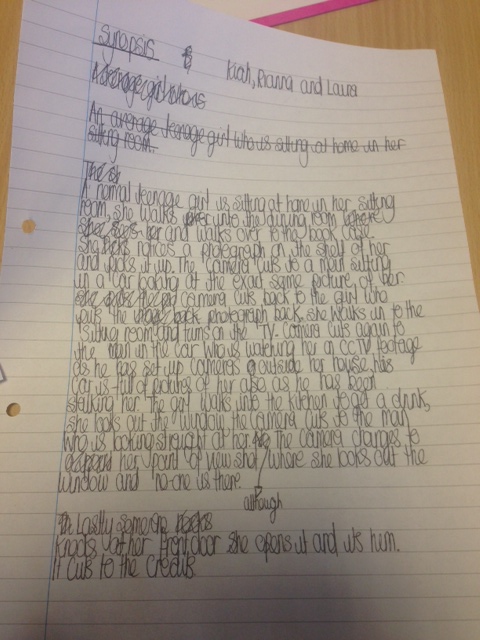 Synopsis
Kiah, Rianna and Laura
A teenage girl who is
An average teenage girl who is sitting at home in her
sitting room.
The
A normal teenage girl is sitting at home in her sitting
room, she walks into the dining room where
she sees her and walks over to the book case
she notices a photograph on the shelf of her
and picks it up. The camera cuts to a man sitting
in a car looking at the exact same picture of her.
she the camera cuts back to the girl who
puts the back photograph back. She walks in to the
sitting room and turns on the TV. Camera cuts again to
the man in the car who is watching her on CCTV footage
as he has set up cameras outside her house. His
car is full of pictures of her also as he has been
stalking her. The girl walks into the kitchen to get a drink,
she looks out the window the camera cuts to the man
who is looking straight at her. The camera changes to
her point of view shot where she looks out the
window and no-one is there.
although
Lastly someone
knocks at her front door she opens it and its him.
It cuts to the credits